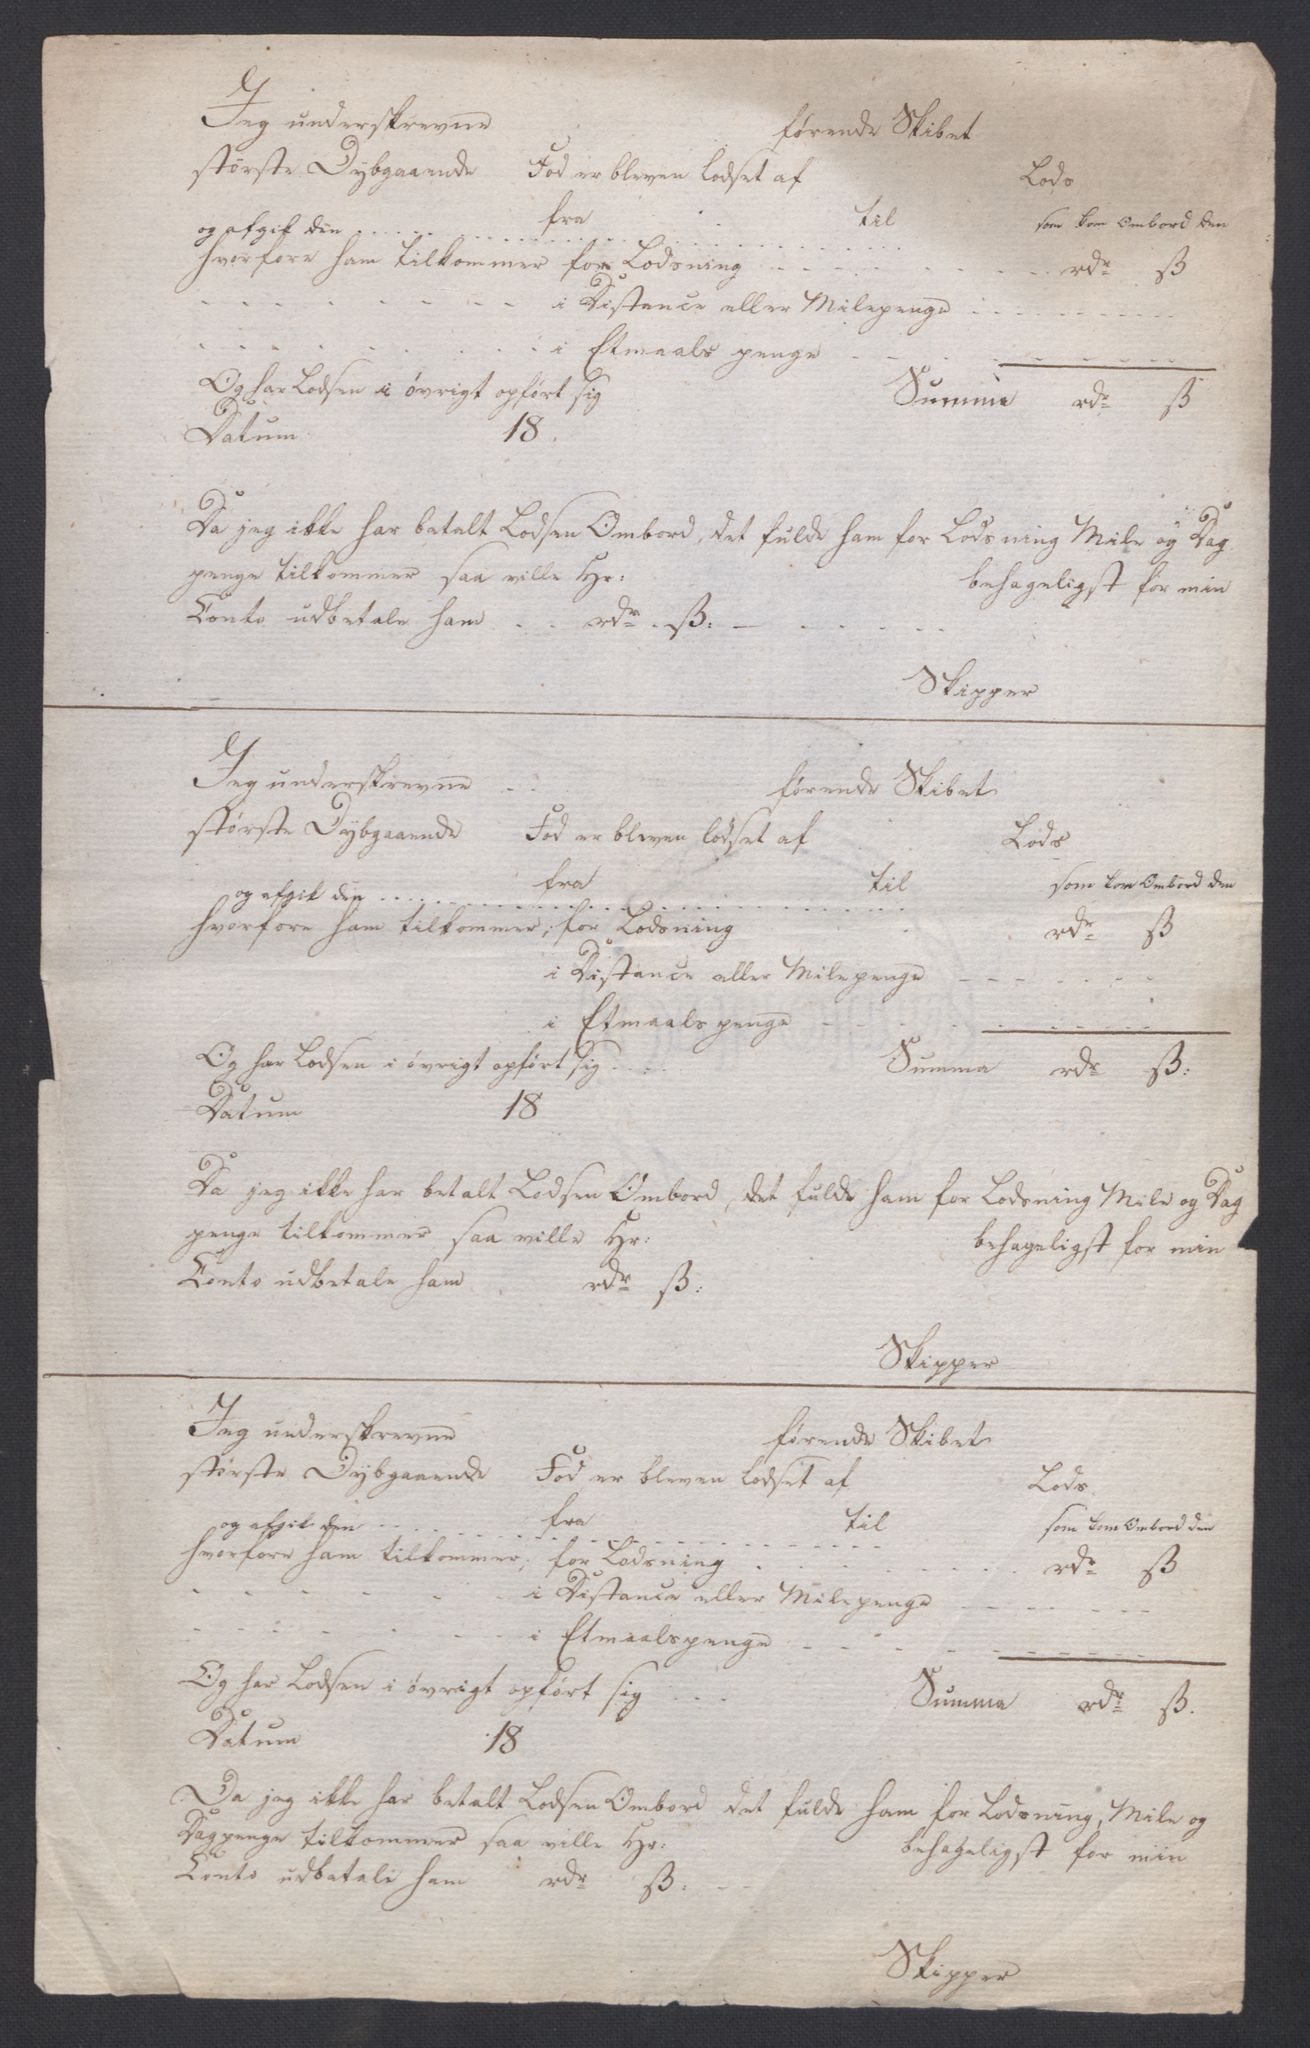 Jeg underskrevne førende Skibet
største Dybgaaende Fod er bleven lodset af Lods
fra til som kom Ombord den
og afgik den . . . . . . . . . . . .
hvorfore ham tilkommer for Lodsning . . . . . . . . . rdr ß
- - - - - - - - i Distance eller Milepenge . . . . . . . . .
- - - - - - - - i Etmaals penge - - - - - - - -
Og har Lodsen i øvrigt opført sig Summa rdr ß
Datum 18 .
Da jeg ikke har betalt Lodsen Ombord, det fulde ham for Lodsning Mile og Dag
penge tilkommer saa ville Hr: behageligst for min
Conto udbetale ham . . rdr . ß: — . . . .
Skipper
Jeg underskrevne - - førende Skibet
største Dybgaaende Fod er bleven lodset af Lods
fra til som kom Ombord den
og afgik den . . . . . . . . . . . .
hvorfore ham tilkommer, for Lodsning rdr ß
i Distance eller Milepenge - - - - - - -
i Etmaals penge - - - - - - - -
Og har Lodsen i øvrigt opført sig . . . . Summa rdr ß:
Datum 18
Da jeg ikke har betalt Lodsen Ombord, det fulde ham for Lodsning Mile og Dag
penge tilkommer saa ville Hr: behageligst for min
Conto udbetale ham rdr ß:
Skipper
Jeg underskrevne førende Skibet
største Dybgaaende Fod er bleven lodset af Lods
fra til som kom Ombord den
og afgik den . . . . . . . . . . . .
hvorfore ham tilkommer, for Lodsning . . . . . . . rdr ß
- - - - - - - i Distance eller Milepenge - - - - - - -
- - - - - - - - i Etmaalspenge - - - - - - - -
Og har Lodsen i øvrigt opført sig . . . Summa rdr ß.
Datum 18
Da jeg ikke har betalt Lodsen Ombord det fulde ham for Lodsning, Mile og
Dagpenge tilkommer saa ville Hr: behageligst for min
Conto udbetale ham rdr ß: - -
Skipper